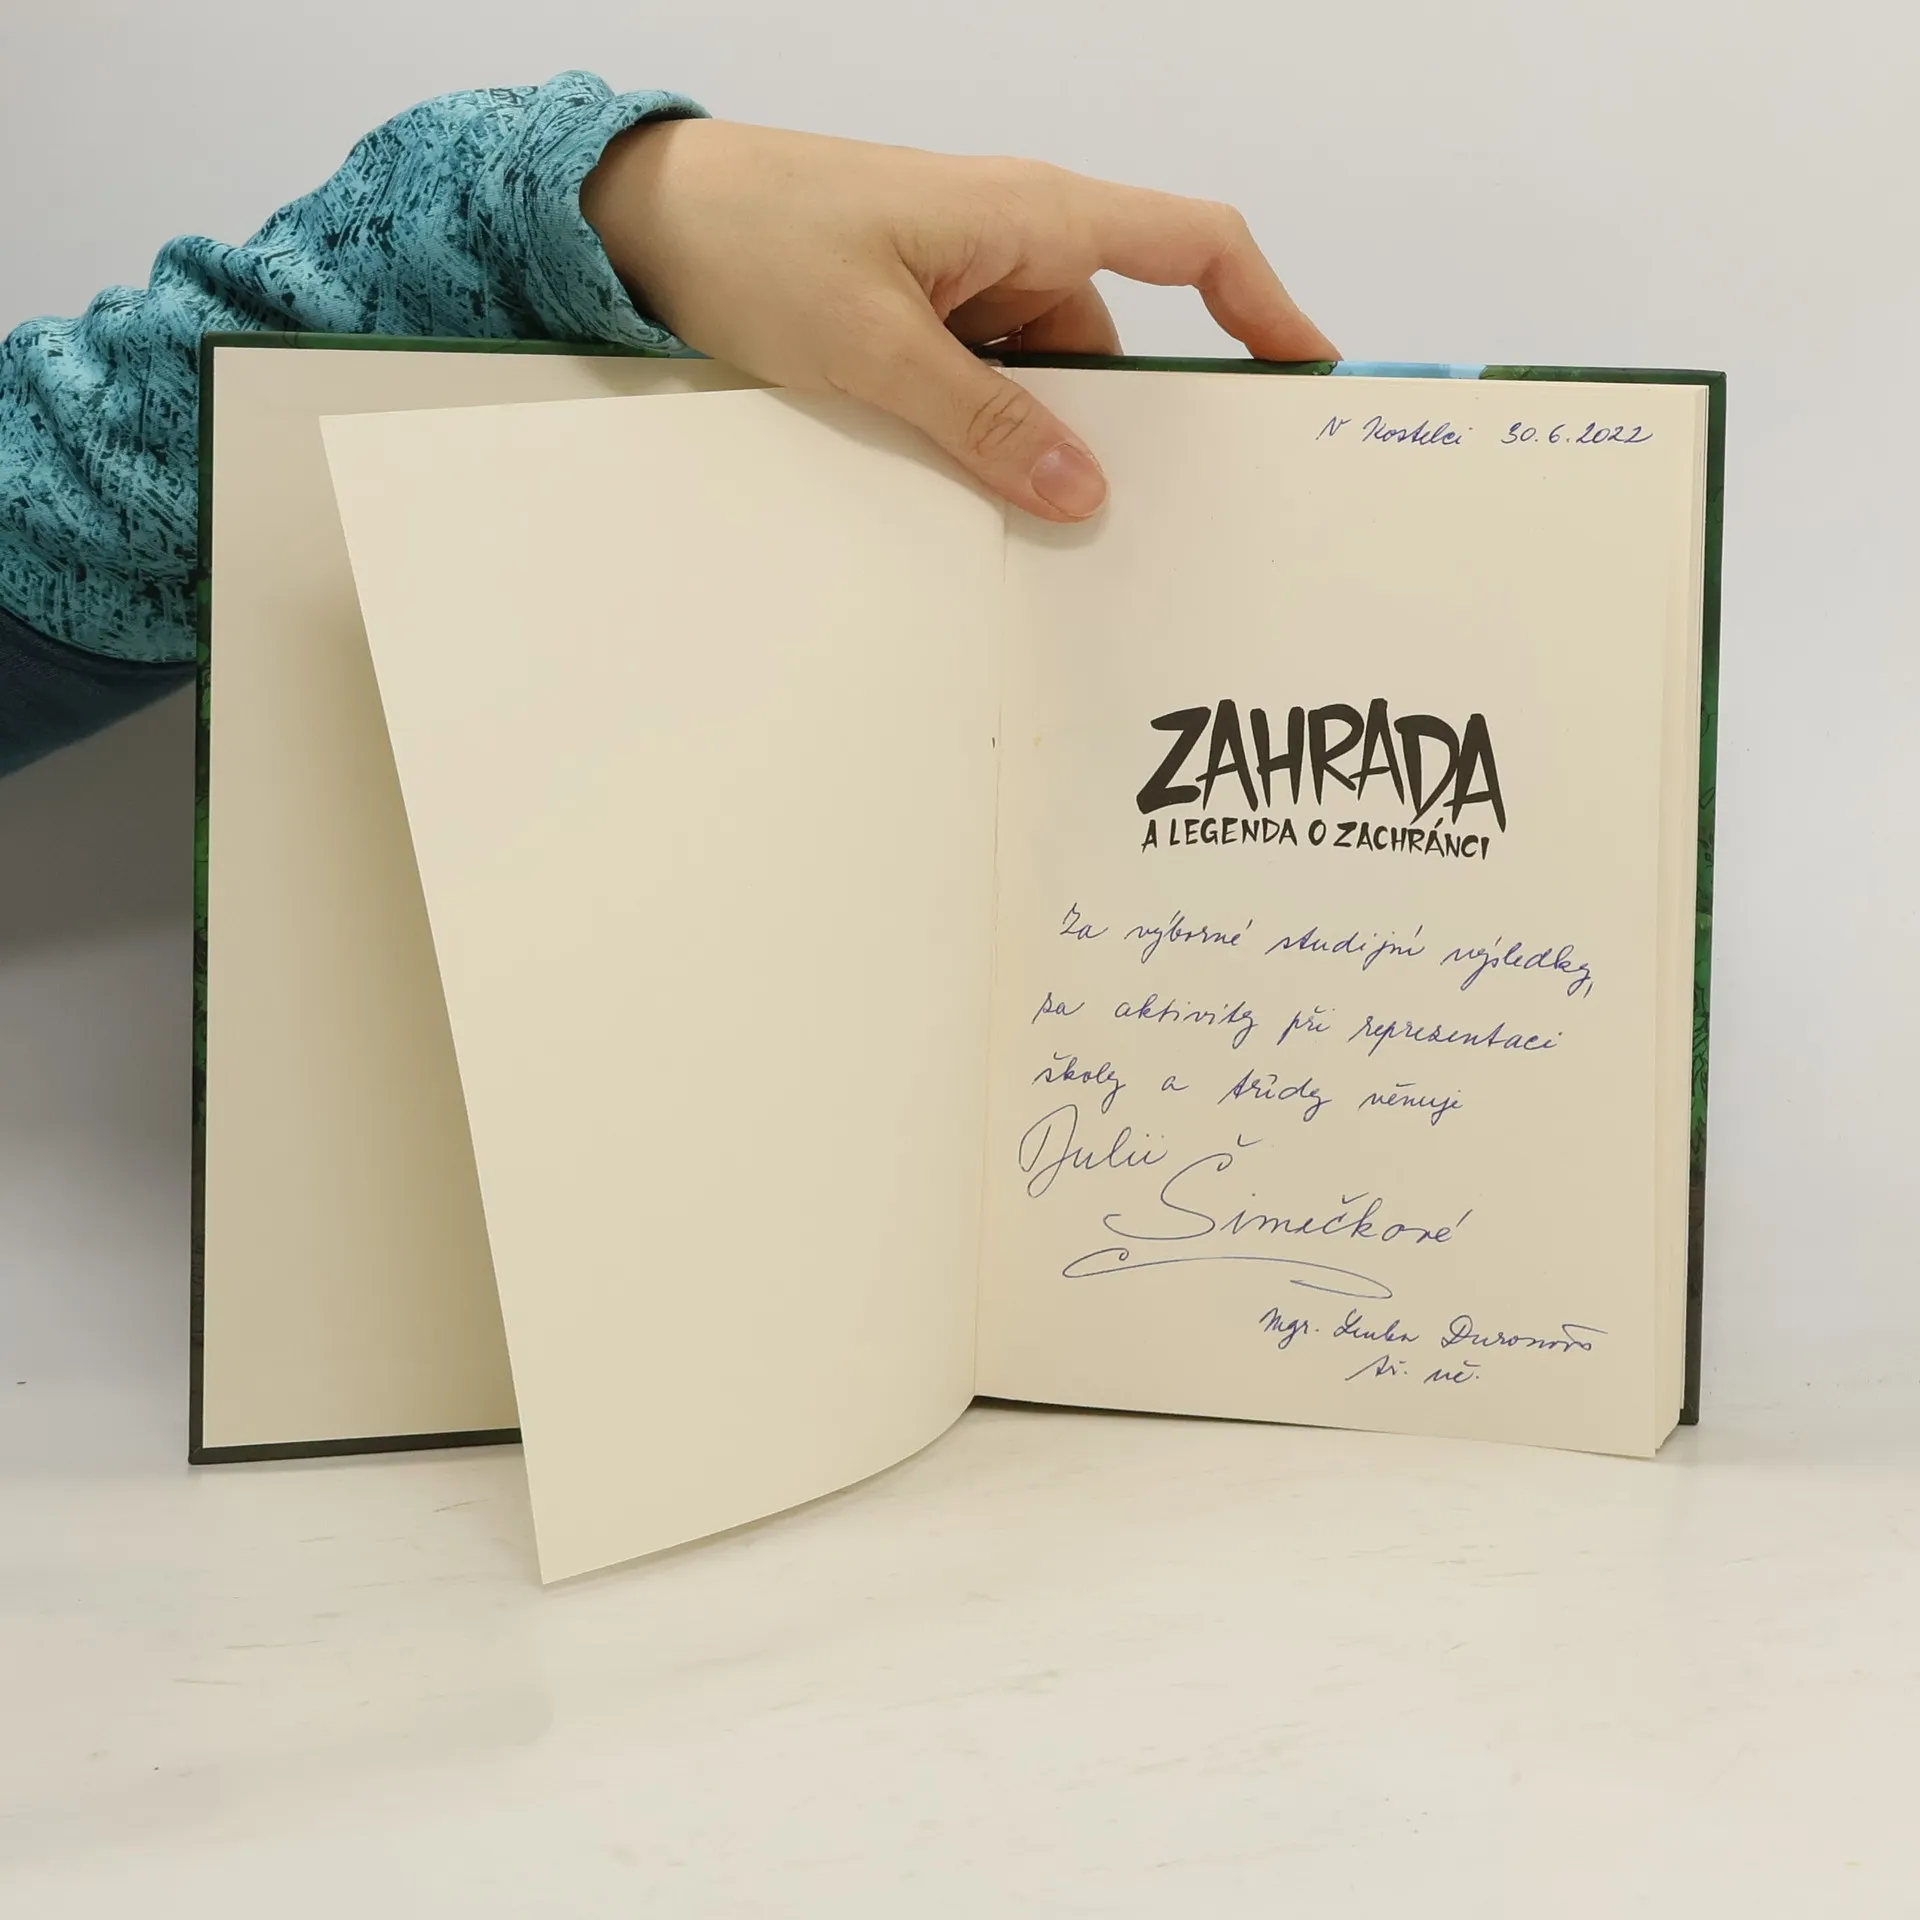 V Kostelci 30.6.2022
ZAHRADA
A LEGENDA O ZACHRÁNCI
Za výborné studijní výsledky,
za aktivity při reprezentaci
školy a třídy věnuje
Julii
Šimečkové
Mgr. Lenka Duronová
tř. uč.